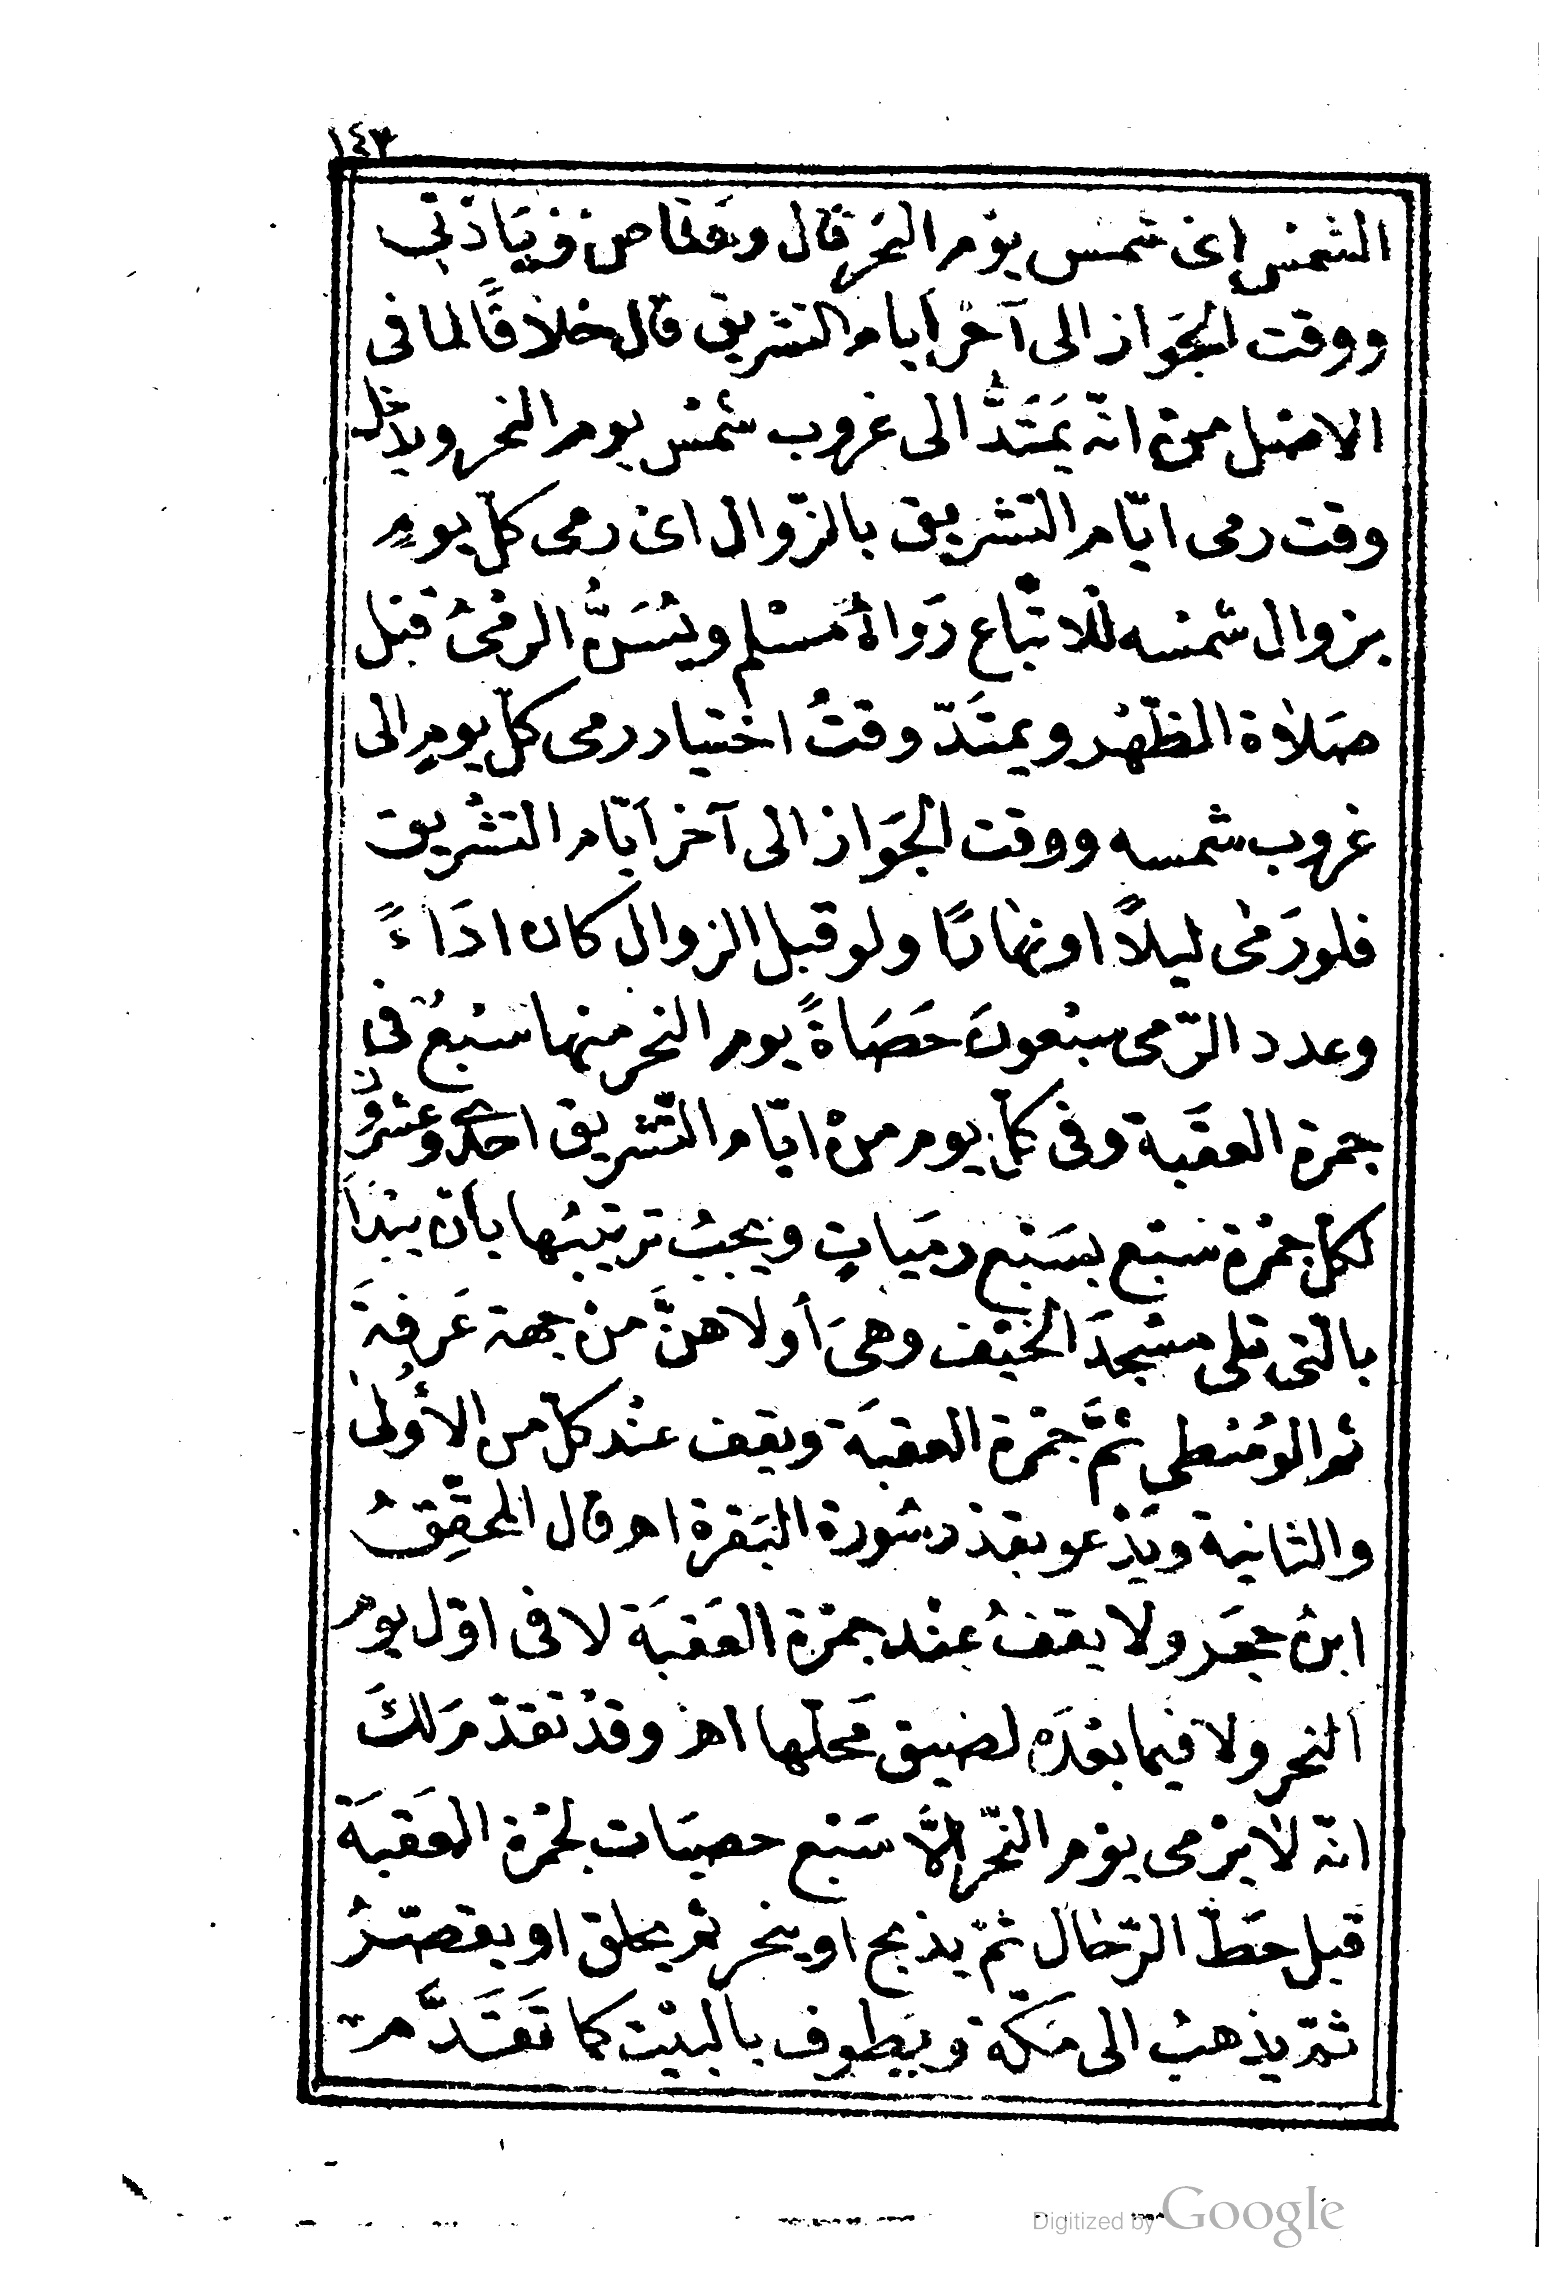 ١٤٣
الشمس اى شمس يوم النحر قال وهذا من زيادتى
ووقت الجواز الى آخر أيام التشريق قال خلافًا لما فى
الاصل من انّه يَمتَدُّ الى غروب شمس يوم النحر ويدخل
وقت رمى ايّام التشريق بالزّوال اى رمى كلّ يومٍ
بزوال شمسه للاتّباع رَواهُ مسْلم ويُسَنُّ الرمْىُ قبل
صَلاة الظّهْر ويمتَدّ وقتُ اختيار رمى كلّ يومٍ الى
غروب شمسه ووقت الجَواز الى آخر اَيّام التشْريق
فلو رَمٰى ليلاً او نهارًا ولو قبل الزوال كان ادَاءً
وعدد الرّمى سبْعونَ حَصَاةً يوم النحر منها سبْعٌ فى
جمرة العقَبة وفى كلّ يوم منْ ايّام التّشريق احدى وعشرُونَ
لكلّ جمْرة سَبْع بسَبْع رميَاتٍ ويجبُ ترتيبُها بانْ يبْدَأ
بالتى تلى مسْجدَ الخيْف وهىَ أولاهنَّ منْ جهة عَرفةَ
ثم الوُسْطى ثمَّ جمْرة العقبَة ويقف عنْد كلّ من الأُولىٰ
والثانية ويَدْعو بقدْر سُورة البَقرة اهـ قال المحَقّقُ
ابنُ حجَر ولا يقفُ عنْد جمْرة العَقبَة لا فى اوّل يوم
النحر ولا فيما بعْدَه لضيق مَحلّها اهـ وقدْ تقدّمَ لكَ
انّه لا يرْمى يوْم النّحْر الّا سَبْع حصيَات لجمْرة العَقبَة
قبل حَطّ الرّحَال ثمّ يذبح او ينحر ثم يحلق او يقصّرُ
ثمّ يذهبُ الى مَكّة ويَطوف بالبيْت كما تَقَدَّمَ